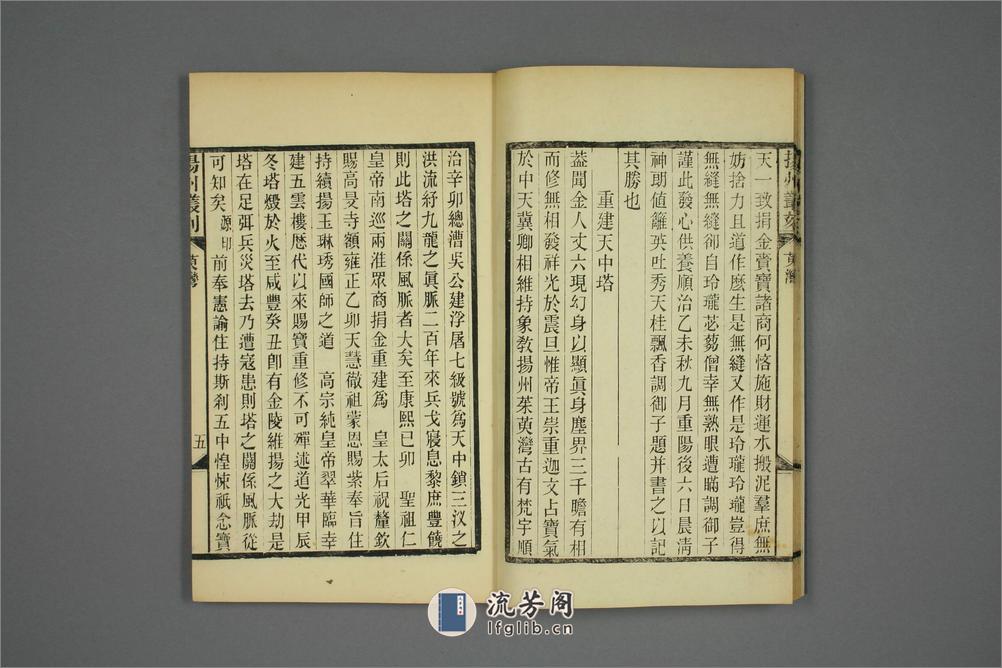 揚州叢刻
茰灣
天一致捐金賫寶諸商何悋施財運水搬泥羣庶無
妨捨力且道作麽生是無縫又作是玲瓏玲瓏豈得
無縫無縫卻自玲瓏苾蒭僧幸無熟眼遭瞞調御子
謹此發心供養順治乙未秋九月重陽後六日晨淸
神朗値籬英吐秀天桂飄香調御子題并書之以記
其勝也
重建天中塔
蓋聞金人丈六現幻身以顯眞身塵界三千瞻有相
而修無相發祥光於震旦惟帝王崇重迦文占寶氣
於中天冀卿相維持象敎揚州茱萸灣古有梵宇順
治辛卯總漕吳公建浮屠七級號爲天中鎖三汊之
洪流紓九龍之眞脈二百年來兵戈寢息黎庶豐饒
則此塔之關係風脈者大矣至康熙已卯 聖祖仁
皇帝南巡兩淮眾商捐金重建爲 皇太后祝釐欽
賜高旻寺額雍正乙卯天慧徹祖蒙恩賜紫奉旨住
持續揚玉琳琇國師之道 高宗純皇帝翠華臨幸
建五雲樓歷代以來賜寶重修不可殫述道光甲辰
冬塔燬於火至咸豐癸丑卽有金陵維揚之大劫是
塔在足弭兵災塔去乃遭寇患則塔之關係風脈從
可知矣 源印 前奉憲諭住持斯刹五中惶悚祇念寶
揚州叢刻
茰灣
五
流芳阁
lfglib.cn